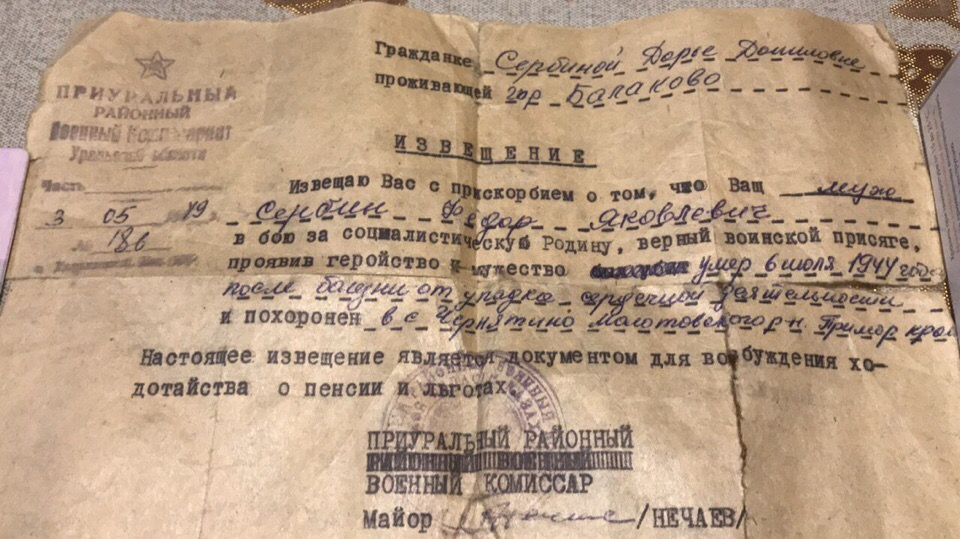 Гражданке Сербиной Дарье Даниловне
проживающей гор Балаково
ПРИУРАЛЬНЫЙ
РАЙОННЫЙ
Военный Комиссариат
Уральской области
Часть
3 05 19
№ 186
ИЗВЕЩЕНИЕ
Извещаю Вас с прискорбием о том, что Ваш муж
Сербин Федор Яковлевич
в бою за социалистическую Родину, верный воинской присяге,
проявив геройство и мужество умер 6 июля 1944 года
после болезни от упадка сердечной деятельности
и похоронен в с Чернятино Молотовского р-н. Примор края
Настоящее извещение является документом для возбуждения хо-
дотайства о пенсии и льготах.
ПРИУРАЛЬНЫЙ РАЙОННЫЙ
ВОЕННЫЙ КОМИССАР
Майор /НЕЧАЕВ/